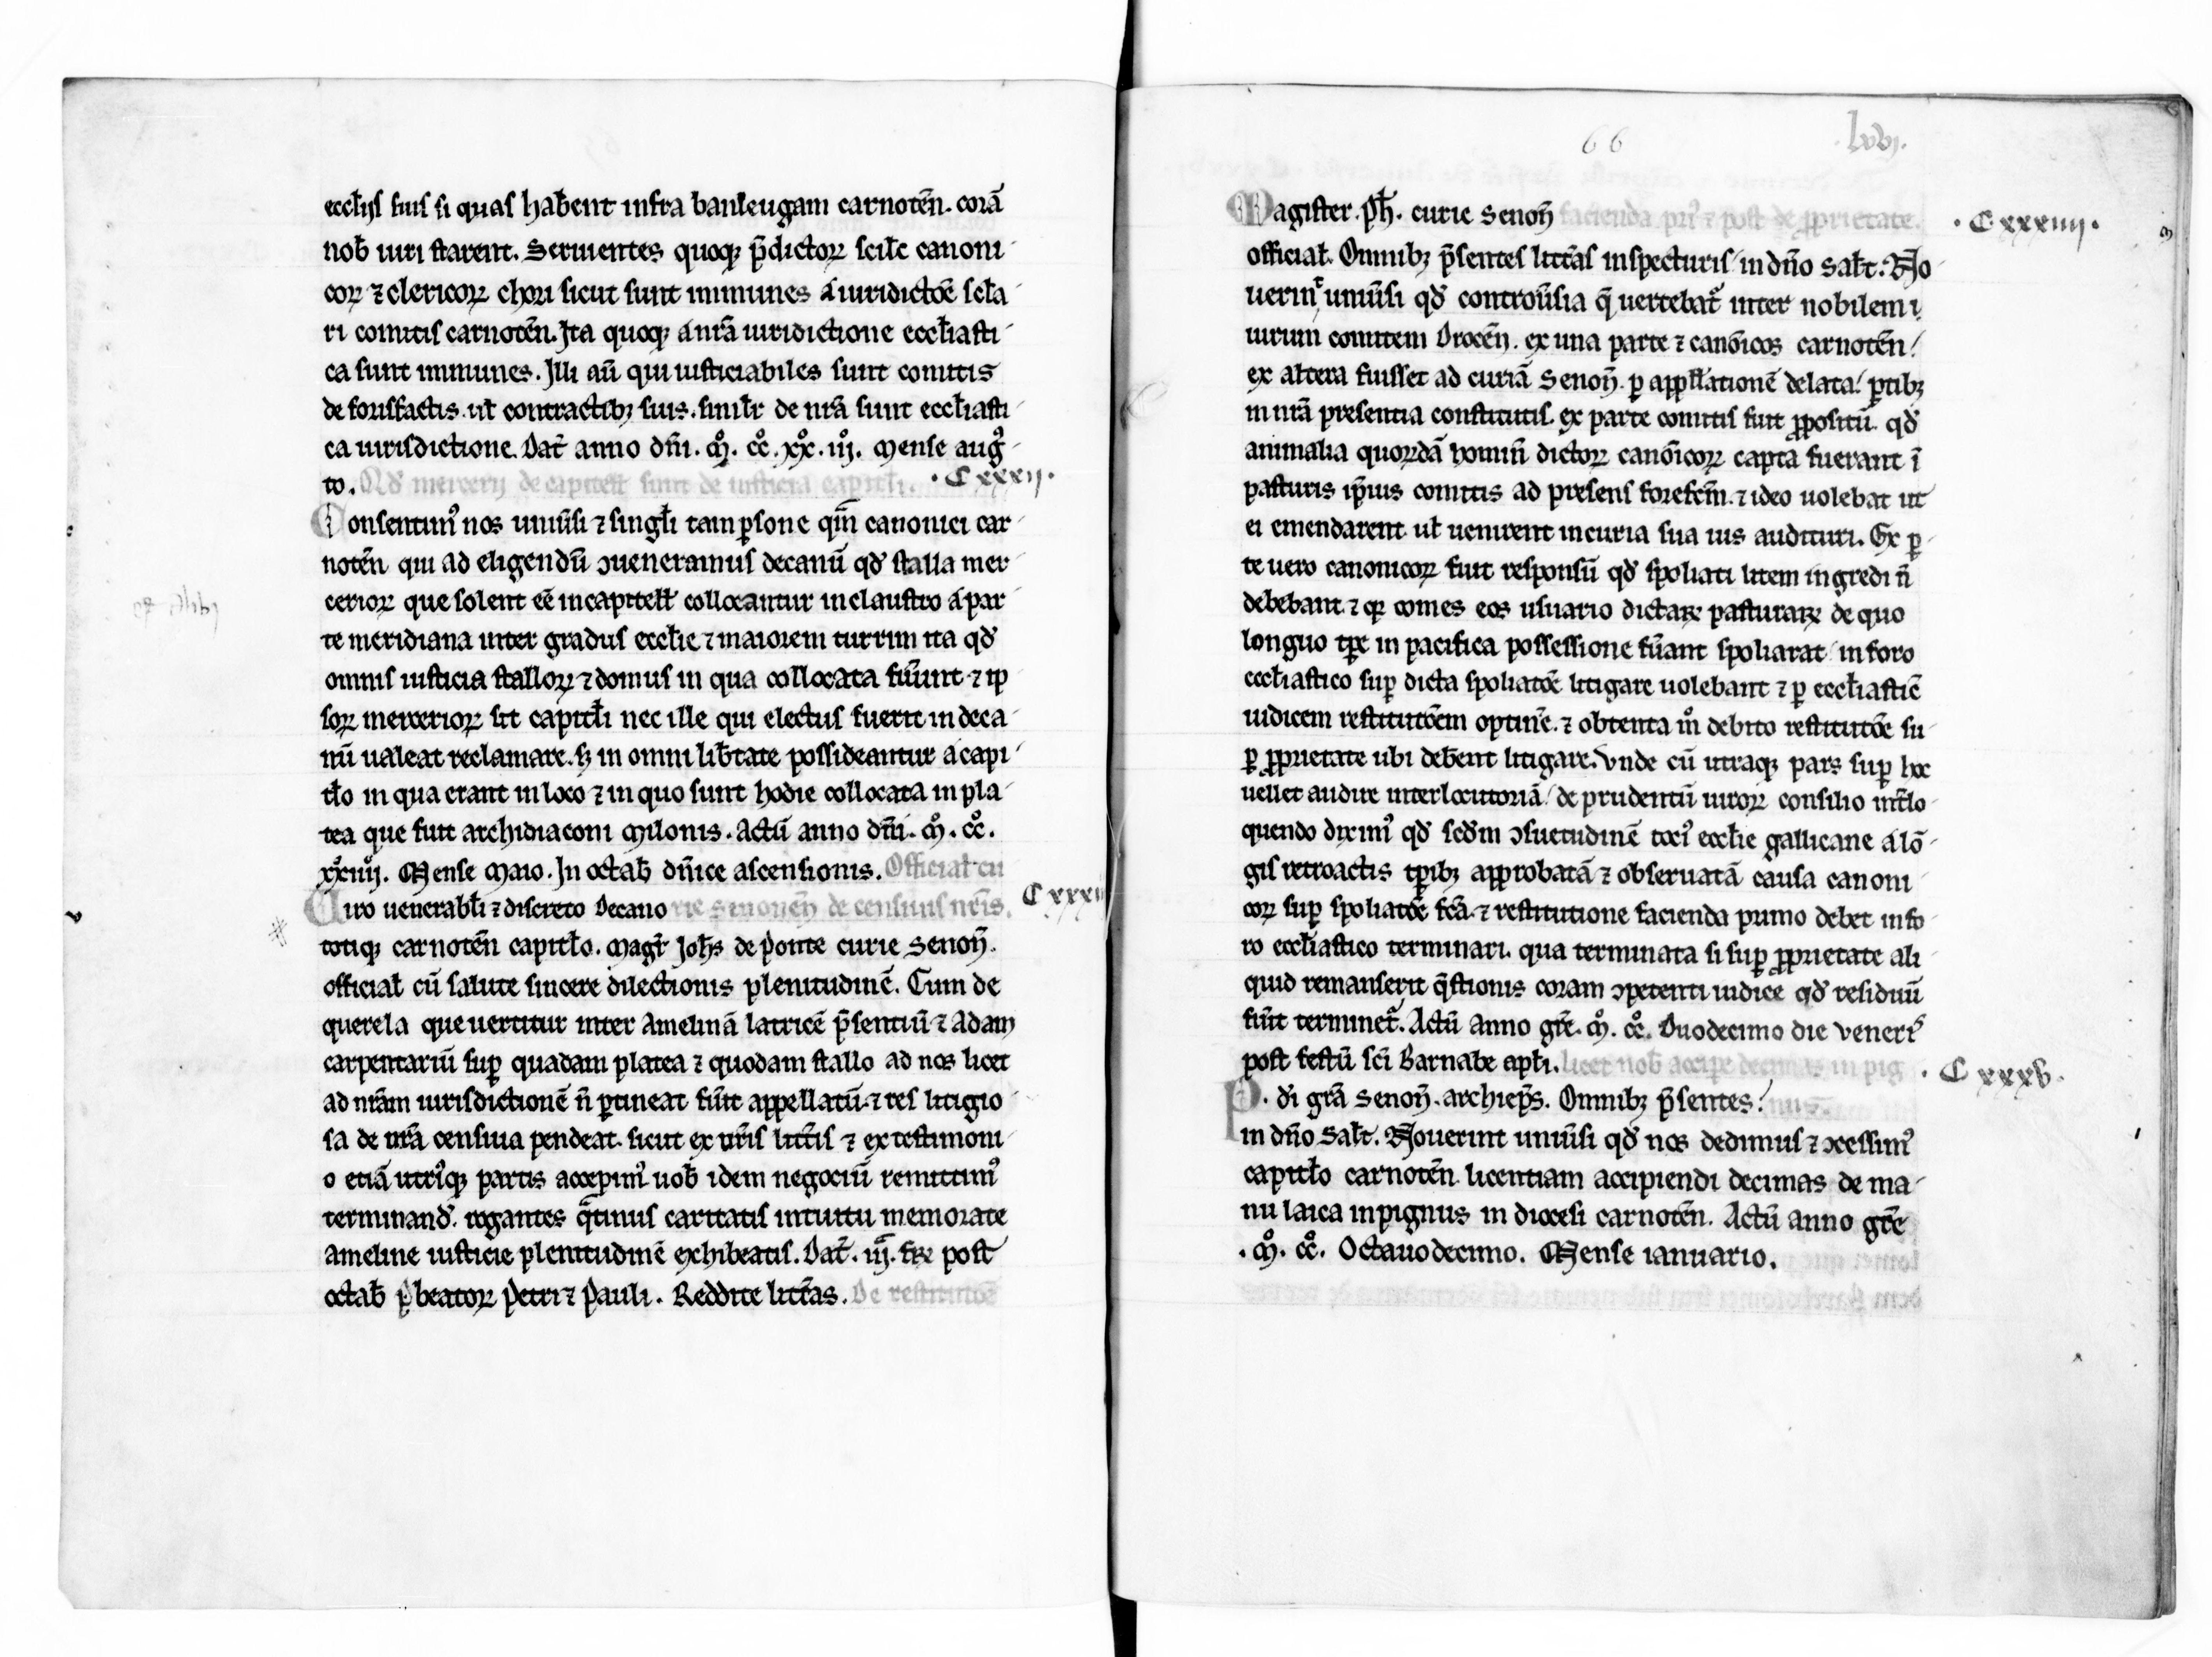 eccłijs suis si quas habent infra banleugam carnoteñ. corā
nob̄ iuri starent. Seruientes quoqꝫ p̄dictoꝝ scilc̄ canoni
coꝝ ⁊ clericoꝝ chori sicut sunt inmunes a iuridictōe scła
ri comitis carnoteñ. Ita quoqꝫ a nrā iuridictione eccłiasti
ca sunt inmunes. Illi aū qui iusticiabiles sunt comitis
de forisfactis. uł contractibꝫ suis. similr̄ de nrā sunt eccłiasti
ca iurisdictione. Dat̄ anno dn̄i. m̊. cc̊. xx̊. iij̊. Mense augꝰ
to. Qđ mercerij de capitell̄ sunt de iusticia capitłi. · C xxxij ·
Consentimꝰ nos uniūsi ⁊ singłi tam ꝑsone qm̄ canonici car
noteñ qui ad eligendū ↄueneramus decanū qđ stalla mer
cerioꝝ que solent eē in capitell̄ collocantur in claustro a par
te meridiana inter gradus eccłie ⁊ maiorem turrim ita qđ
omnis iusticia stalloꝝ ⁊ domus in qua collocata fūint ⁊ ip
soꝝ mercerioꝝ sit capitłi nec ille qui electus fuerit in deca
nū ualeat reclamare. sꝫ in omni lib̄tate possideantur a capi
tło in qua erant in loco ⁊ in quo sunt hodie collocata in pla
tea que fuit archidiaconi Milonis. Actū anno dn̄i. m̊. cc̊.
xx̊iiij̊. Mense Maio. In octab̄ dn̄ice ascensionis. Officiał cu
Uiro uenerabłi ⁊ discreto Decano rie Senoneñ de censiuis nr̄is. C xxxi
totiqꝫ carnoteñ capitło. Magr̄ Joħs de ponte curie Senoñ.
officiał cū salute sincere dilectionis plenitudinē. Cum de
querela que uertitur inter Amelinā latricē p̄sentiū ⁊ Adam
carpentariū suꝑ quadam platea ⁊ quodam stallo ad nos licet
ad nr̄am iurisdictionē n̄ ꝑtineat fūit appellatū. ⁊ res litigio
sa de nr̄a censiua pendeat. sicut ex ur̄is litt̄is ⁊ ex testimoni
o etiā utriꝰqꝫ partis accepimꝰ uob̄ idem negociū remittimꝰ
terminanđ. rogantes q̄tinus caritatis intuitu memorate
ameline iusticie plenitudinē exhibeatis. Dat̄. iij̄. fr̄e post
octab̄ p̄ beatoꝝ petri ⁊ pauli. Reddite litt̄as. De restitutōe
66 lxvj.
Magister. ph̄. curie Senoñ facienda priꝰ ⁊ post de ꝓprietate. · C xxxiiij ·
officiał. Omnibꝫ p̄sentes litt̄as inspecturis in dn̄o sałt. No
uerint uniūsi qđ controūsia q̄ uertebat᷑ inter nobilem
uirum comitem Droceñ. ex una parte ⁊ canōicos carnoteñ
ex altera fuisset ad curiā Senoñ. ꝑ appłłationē delata. ꝑtibꝫ
in nrā presentia constitutis. ex parte comitis fuit ꝓpositū. qđ
animalia quoꝝdā homin̄ dictoꝝ canōicoꝝ capta fuerant ī
pasturis ip̄ius comitis ad presens forefc̄m. ⁊ ideo uolebat ut
ei emendarent. uł uenirent in curia sua ius audituri. Ex ꝑ
te uero canonicoꝝ fuit responsū qđ spoliati litem ingredi n̄
debebant ⁊ qꝫ comes eos usuario dictaꝝ pasturaꝝ de quo
longuo tꝑe in pacifica possessione fūant spoliarat in foro
eccłiastico suꝑ dicta spoliatōe litigare uolebant ⁊ ꝑ eccłiasticū
iudicem restitutōem optinē. ⁊ obtenta m̊ debito restitutōe su
ꝑ ꝓprietate ubi deb̄ent litigare. Vnde cū utraqꝫ pars suꝑ hoc
uellet audire interlocutoriā. de prudentū uiroꝝ consilio int̄lo
quendo diximꝰ qđ scđm ↄsuetudinē tociꝰ eccłie gallicane a lō
gis retroactis tꝑibꝫ approbatā ⁊ obseruatā causa canoni
coꝝ suꝑ spoliatōe fc̄ā. ⁊ restitutione facienda primo debet in fo
ro eccłiastico terminari. qua terminata si suꝑ ꝓprietate ali
quid remanserit q̄stionis coram ↄpetenti iudice qđ residuū
fūit terminet᷑. Actū anno gr̄e. m̊. cc̊. Duodecimo die Venerꝭ
post festū sc̄i Barnabe apłi. licet nob̄ accipe decimas in pig · C xxxv ·
P. di gr̄a Senoñ. archiep̄s. Omnibꝫ p̄sentes. nus.
in dn̄o sałt. Nouerint uniūsi qđ nos dedimus ⁊ ↄcessimꝰ
capitło carnoteñ licentiam accipiendi decimas de ma
nu laica in pignus in diocesi carnoteñ. Actū anno gr̄e
. m̊. cc̊. Octauodecimo. Mense ianuario.